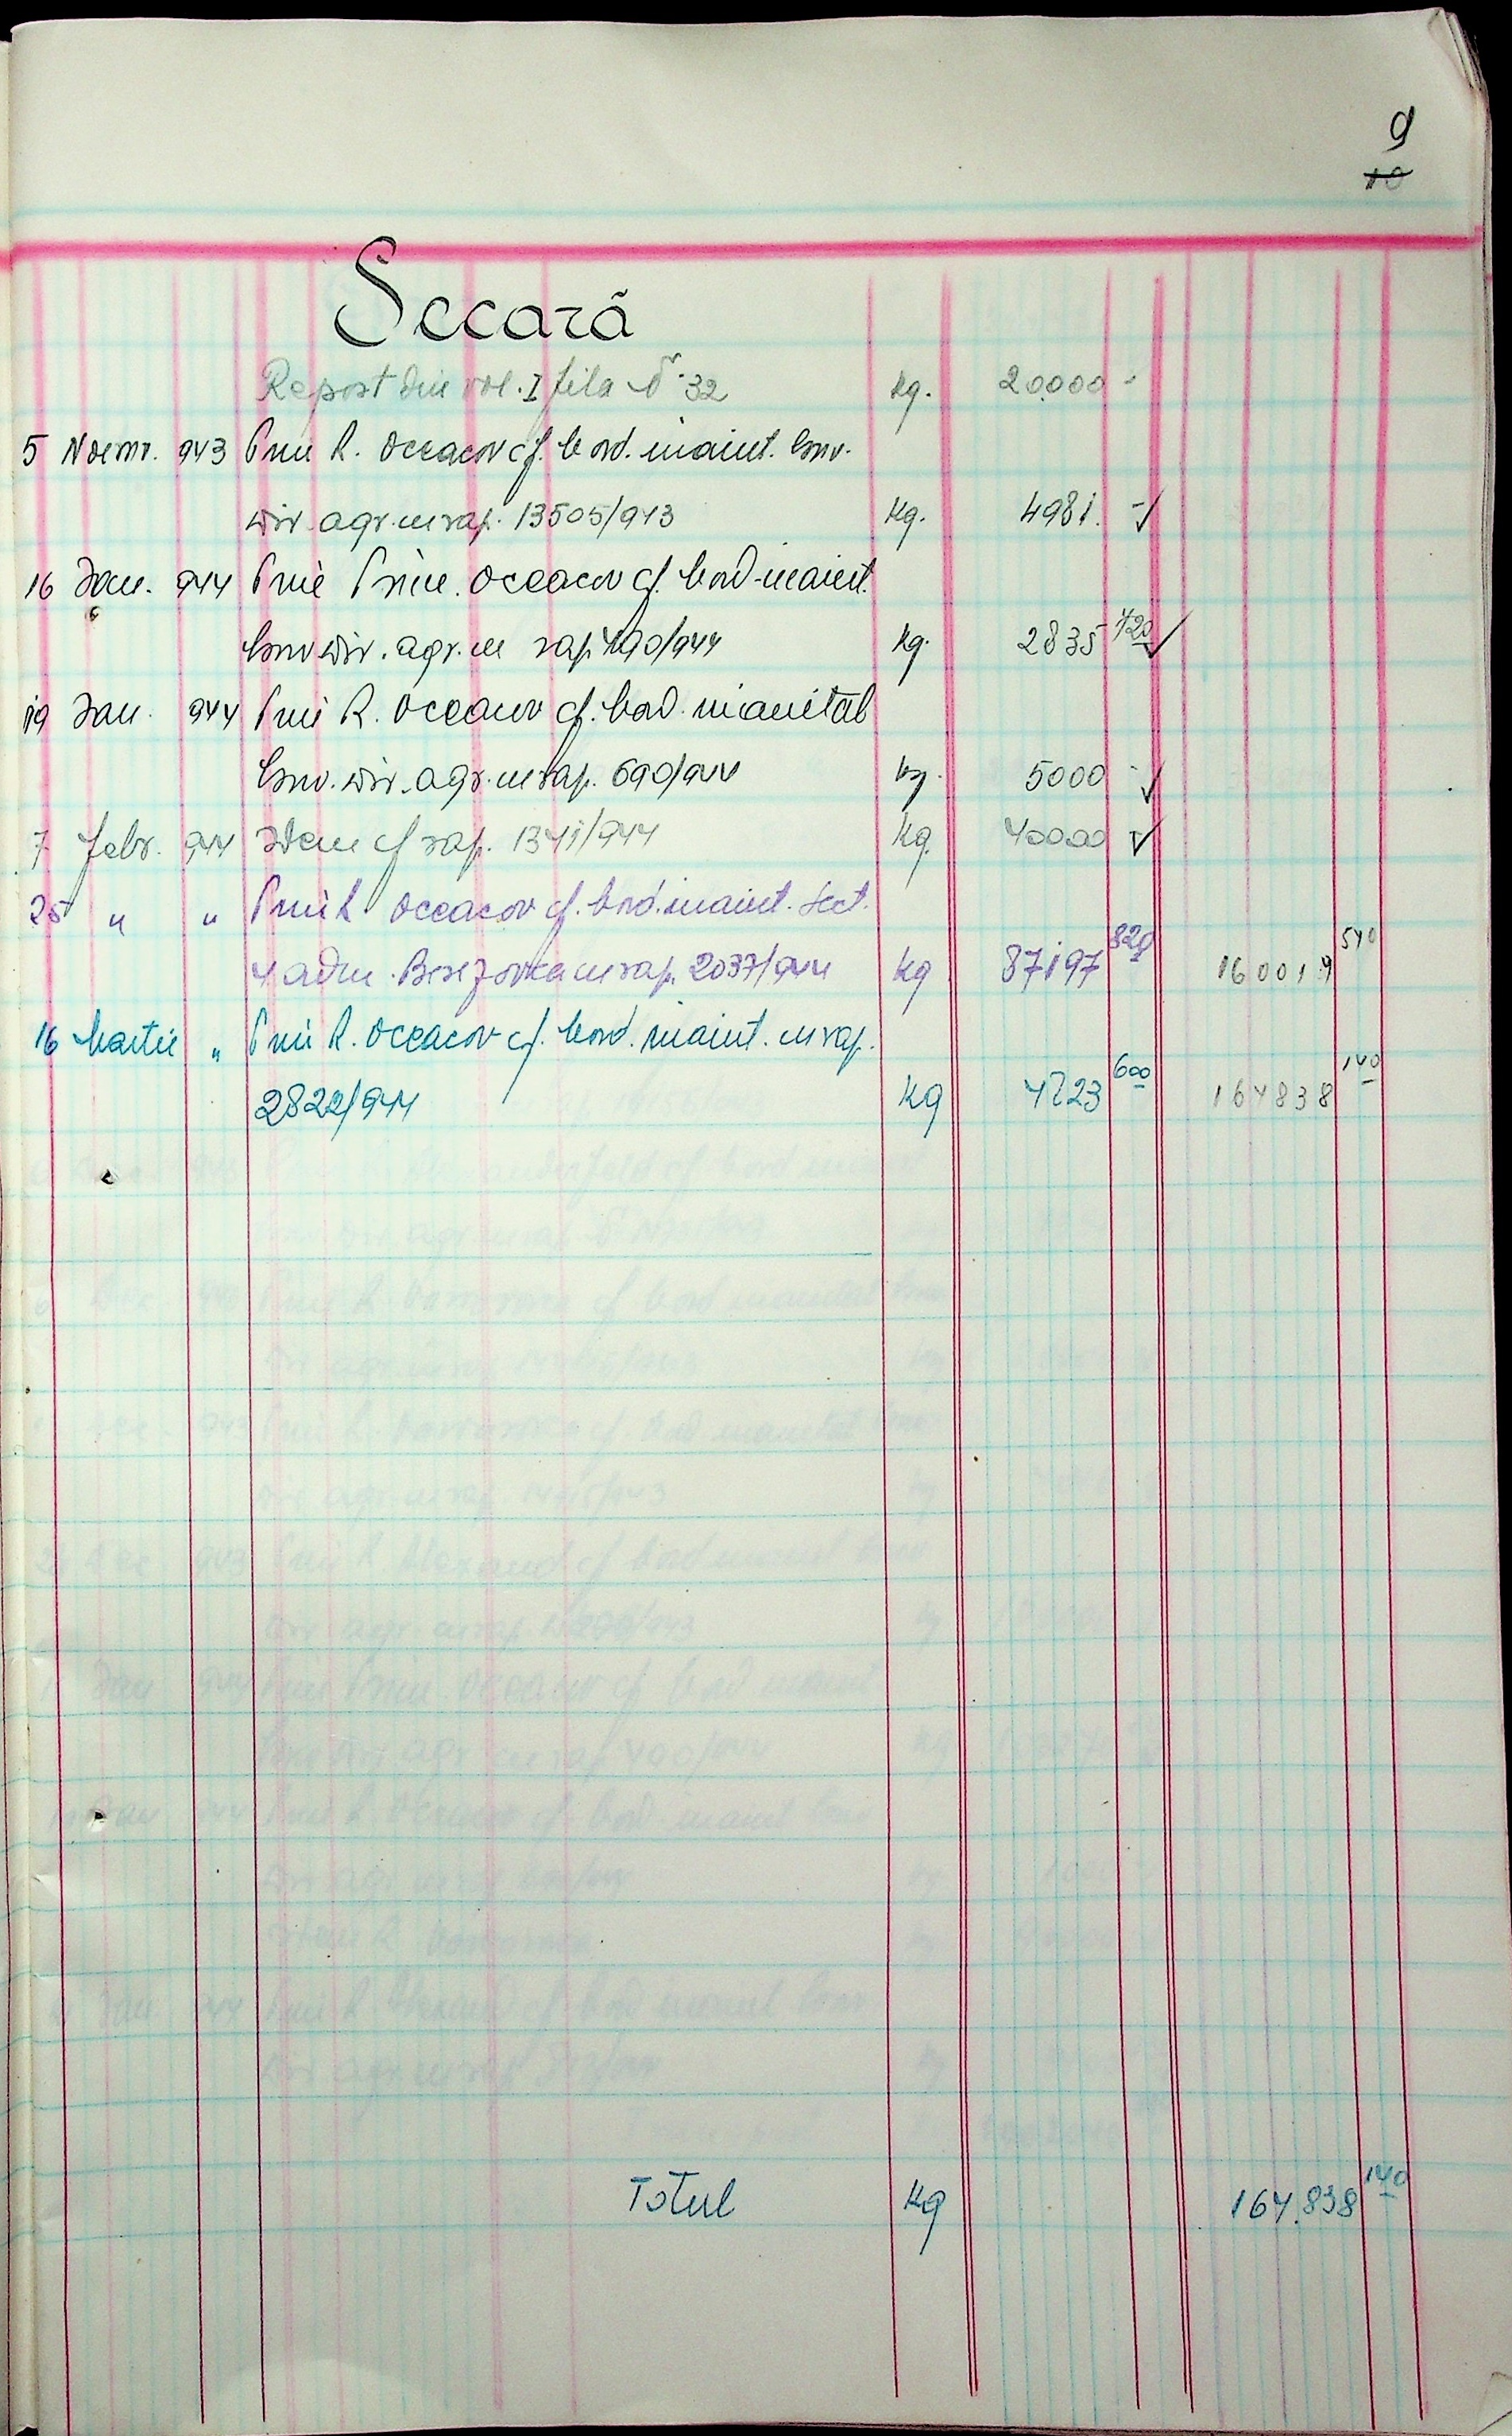 9
10
Secară
Report din vol. I fila Nr. 32 kg. 20.000 -
5 Noemr. 943 Prin R. Oceacov cf. bord. inaint. Conv.
dir. agr. cu rap. 13505/943 kg. 4981. -
16 Jan. 944 Prin Prim. Oceacov cf. bord. inaint.
Conv dir. agr. cu rap 490/944 kg. 2835 720
19 Jan. 944 Prin R. Oceacov cf. bord. inaintat
Conv. dir. agr. cu rap. 690/944 kg. 5000 -
7 Febr. 944 Idem cf rap. 1341/944 kg. 40000 -
25 " " Prin R. Oceacov cf. bord. inaint. Sect.
4 adm. Berezovca cu rap. 2037/944 kg 87197 820 160014 540
16 Martie " Prin R. Oceacov cf. bord. inaint. cu rap.
2822/944 kg 4723 600 164838 140
Total kg 164.838 140